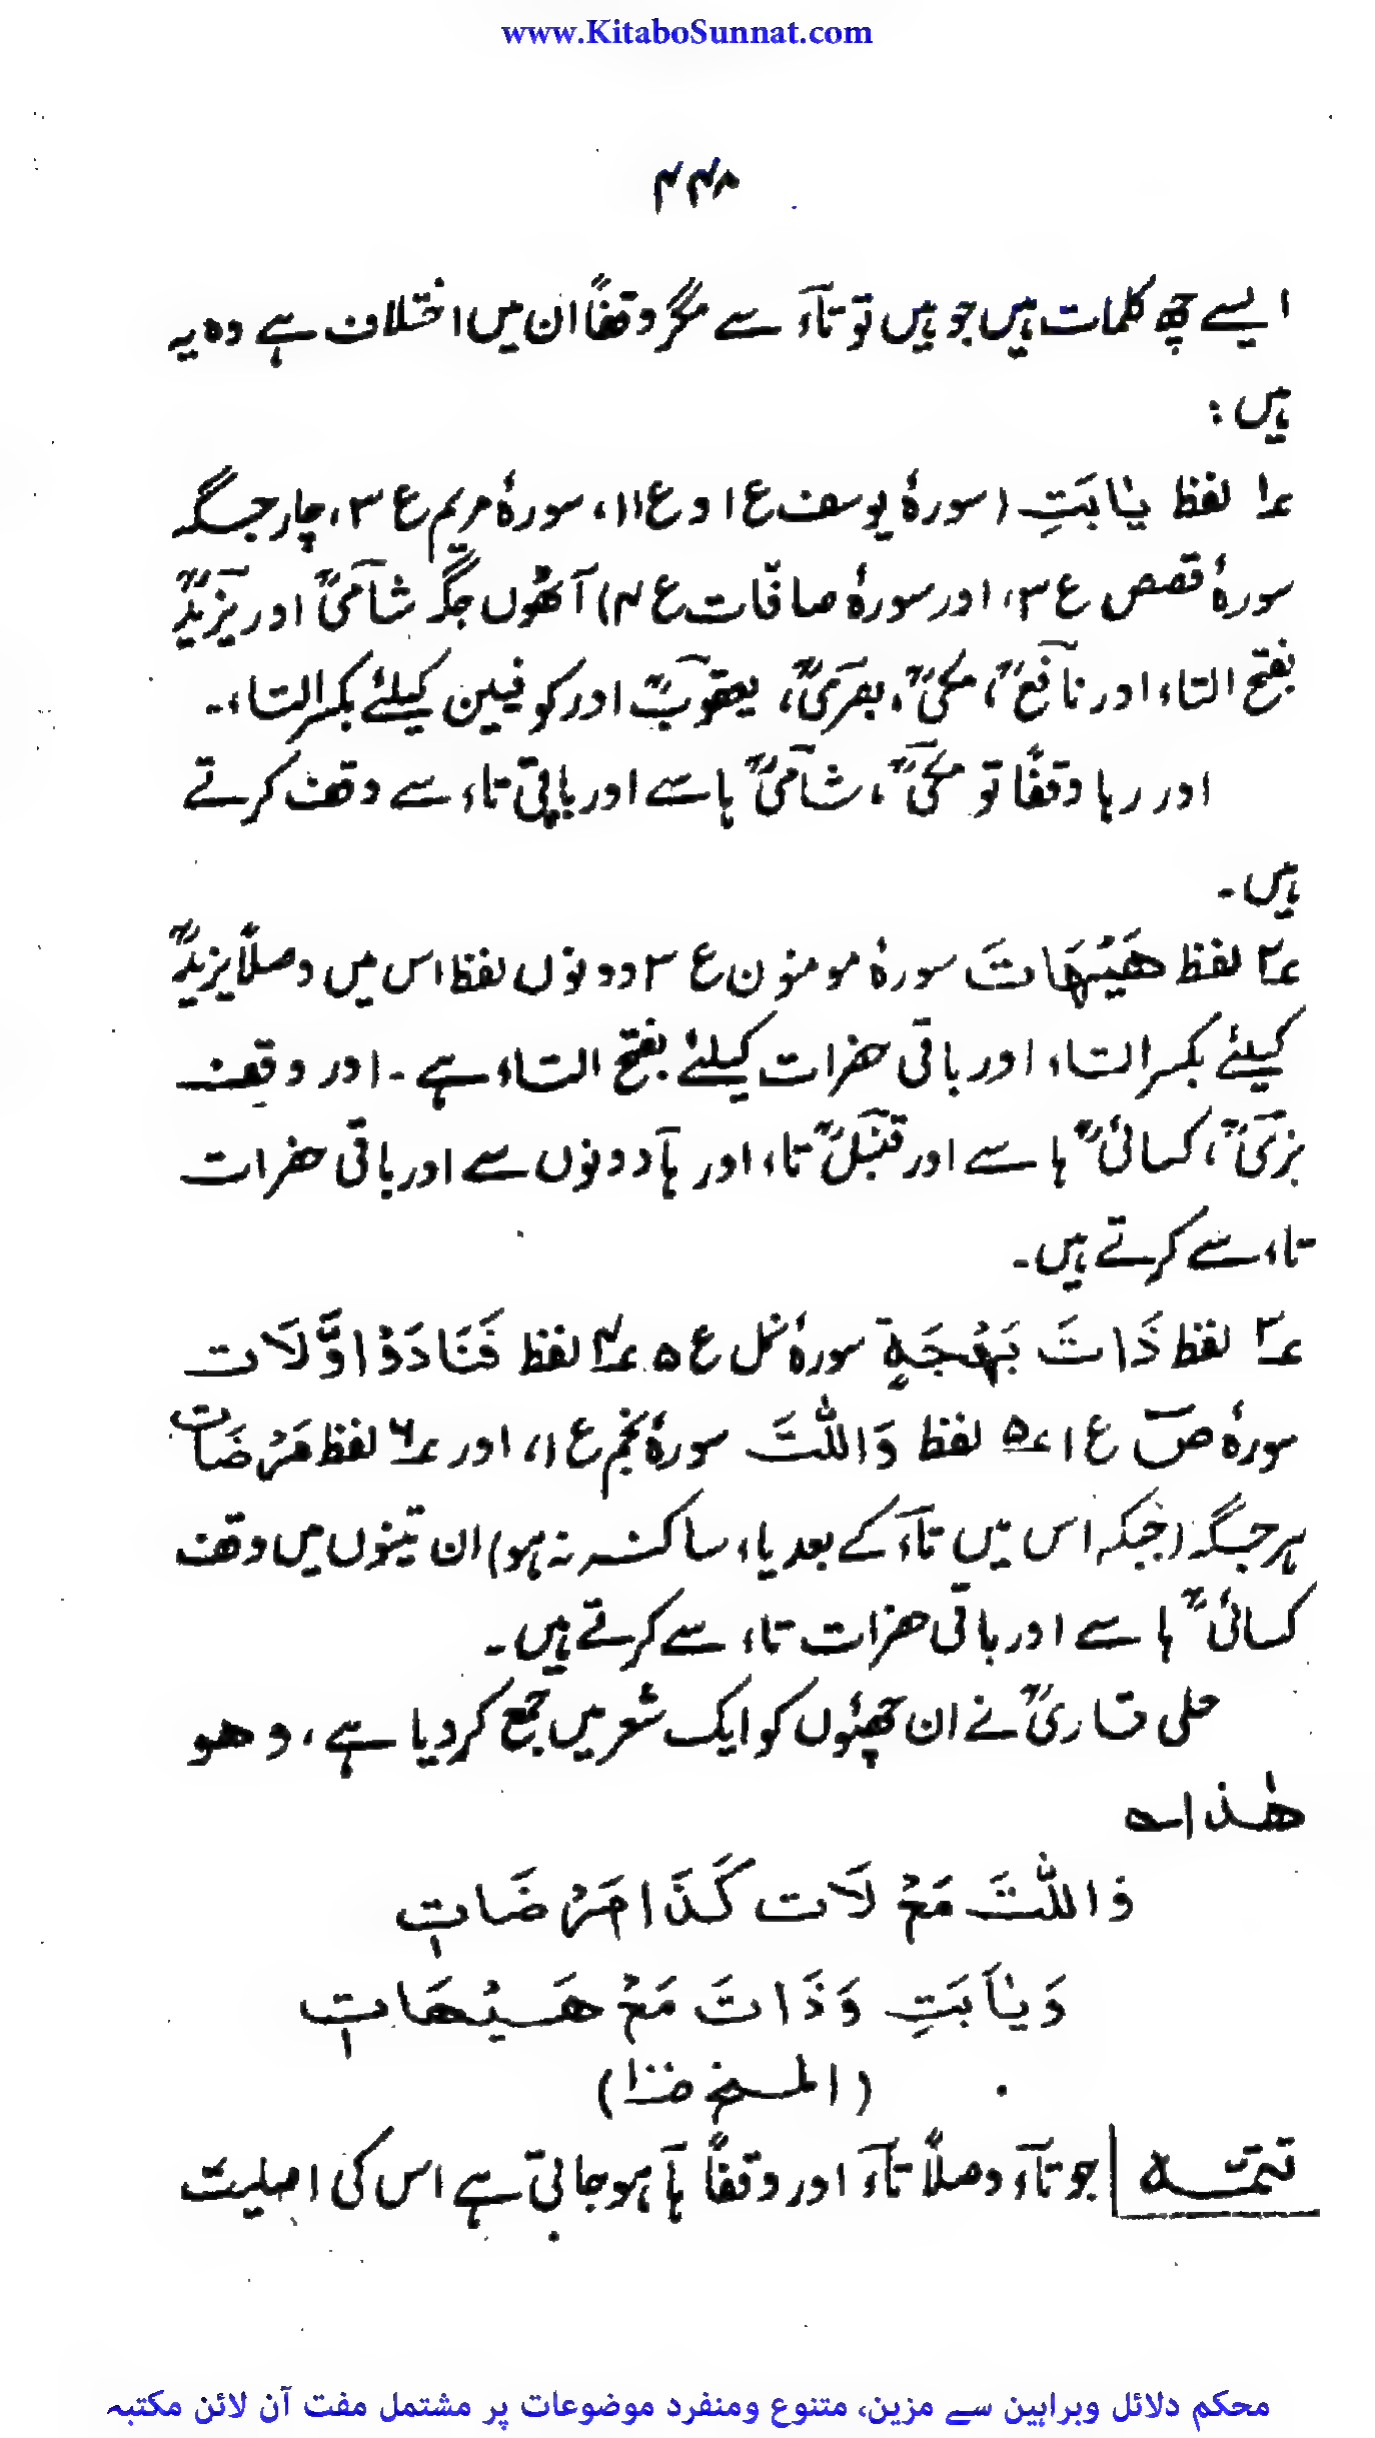 www.KitaboSunnat.com
۴۴۸
ایسے چھ کلمات ہیں جو ہیں تو تآء سے مگر وقفاً ان میں اختلاف ہے وہ یہ
ہیں :
۱؎ لفظ یٰاَبَتِ (سورۂ یوسف ع ۱ و ع ۱۱، سورۂ مریم ع ۳، چار جگہ
سورۂ قصص ع ۳، اور سورۂ صافات ع ۳) آٹھوں جگہ شآمیؒ اور یزیدؒ
بفتح التاء اور نافعؒ، مکیؒ، بصریؒ، یعقوبؒ اور کوفیین کیلئے بکسر التاء۔
اور رہا وقفًا تو مکیؒ، شآمیؒ ہا سے اور باقی تاء سے وقف کرتے
ہیں۔
۲؎ لفظ هَيْهَاتَ سورۂ مومنون ع ۳ دونوں لفظ اس میں وصلاً یزیدؒ
کیلئے بکسر التاء اور باقی حضرات کیلئے بفتح التاء ہے۔ اور وقف
بزیؒ، کسائیؒ ہا سے اور قنبلؒ تاء اور ہآ دونوں سے اور باقی حضرات
تاء سے کرتے ہیں۔
۳؎ لفظ ذَاتَ بَهْجَةٍ سورۂ نمل ع ۵ ۴؎ لفظ فَنَادَوْا وَّلَاتَ
سورۂ صٓ ع ۱ ۵؎ لفظ وَاللّٰتَ سورۂ نجم ع ۱، اور ۶؎ لفظ مَرْضَاتِ
ہر جگہ (جبکہ اس میں تآء کے بعد یاء ساکنہ نہ ہو) ان تینوں میں وقف
کسائیؒ ہا سے اور باقی حضرات تاء سے کرتے ہیں۔
علی قاریؒ نے ان چھئوں کو ایک شعر میں جمع کر دیا ہے، وهو
هٰذا ؎
وَاللّٰتَ مَعْ لَاتَ كَذَا مَرْضَاتِ
وَيٰاَبَتِ وَذَاتَ مَعْ هَيْهَاتِ
(المنح
تتمّہ جو تآء وصلاً تآء اور وقفاً ہآ ہو جاتی ہے اس کی اصلیت
محکم دلائل وبراہین سے مزین، متنوع ومنفرد موضوعات پر مشتمل مفت آن لائن مکتبہ